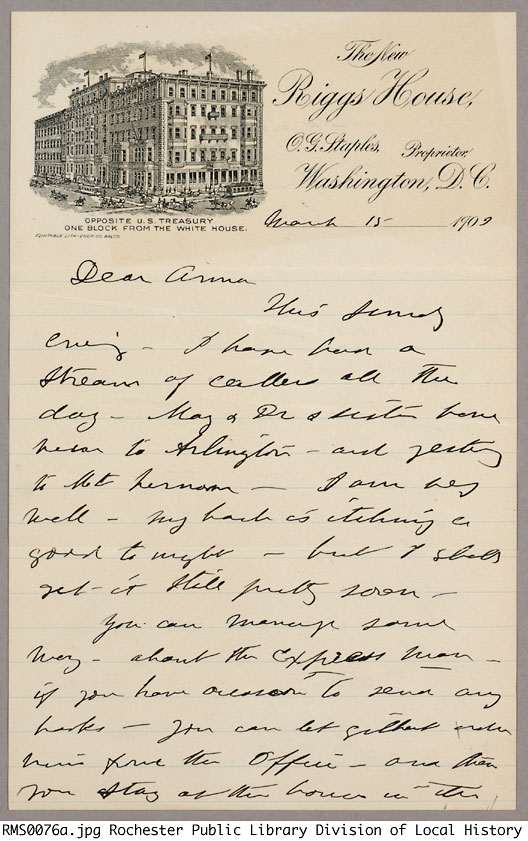 The New
Riggs House,
O.G. Staples, Proprietor,
Washington, D.C.
OPPOSITE U.S. TREASURY
ONE BLOCK FROM THE WHITE HOUSE.
March 15 1902
Dear Anna
This Sunday
eve'g - I have had a
stream of callers all the
day - May & Dr & sister have
been to Arlington - and yesterday
to Mt Vernon - I am very
well - my back is itching a
good to night - but I shall
get it still pretty soon -
You can manage some
way - about the Express man -
if you have occasion to send any
books - You can let Gilbert order
him from the Office - and then
you stay at the house in the
RMS0076a.jpg Rochester Public Library Division of Local History